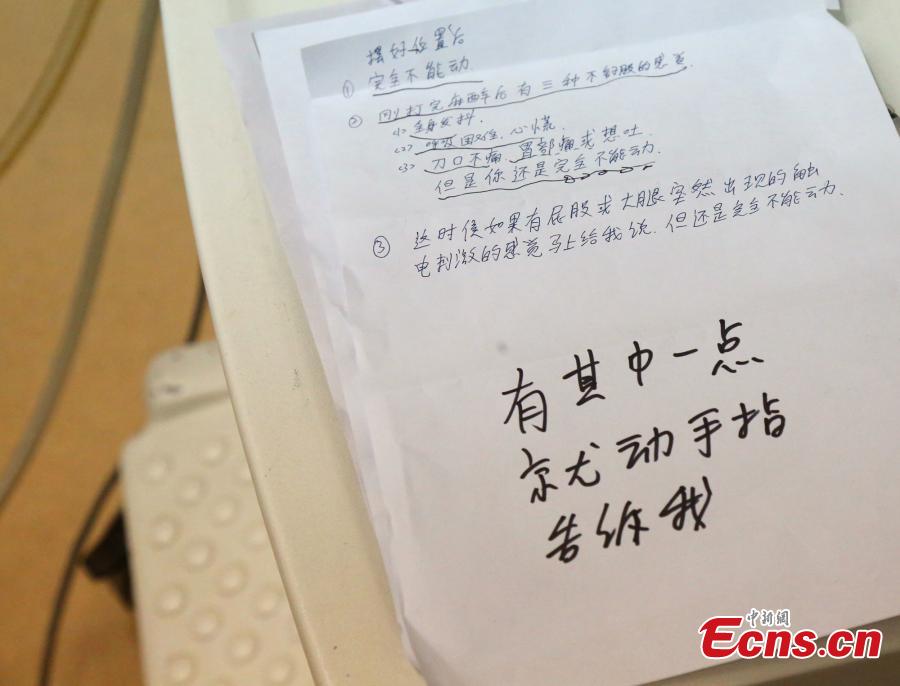 摆好位置后
① 完全不能动
② 刚打完麻醉后有三种不舒服的感觉.
<1> 全身发抖.
<2> 呼吸困难、心慌.
<3> 刀口不痛, 胃部痛或想吐
但是你还是完全不能动.
③ 这时侯如果有屁股或大腿突然出现的触
电刺激的感觉马上给我说. 但还是完全不能动.
有其中一点
就动手指
告给我
中新網
Ecns.cn